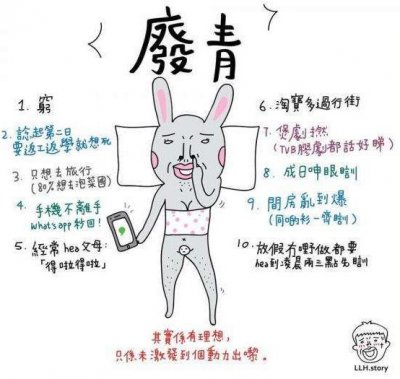 廢青
1. 窮
2. 諗起第二日
要返工返學就想死
3. 只想去旅行
(80%想去泡菜國)
4. 手機不離手
what's app秒回!
5. 經常hea父母:
「得啦得啦」
6. 淘寶多過行街
7. 煲劇撚
(TVB膠劇都話好睇)
8. 成日呻眼瞓
9. 間房亂到爆
(同啲衫一齊瞓)
10. 放假冇嘢做都要
hea到凌晨兩三點先瞓
其實係有理想,
只係未激發到個動力出嚟。
LLH.story